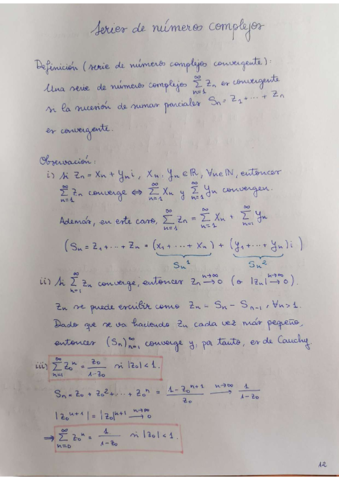 Series de números complejos
Definición (serie de números complejos convergente).
Una serie de números complejos ∑_{n=1}^{∞} Zn es convergente
si la sucesión de sumas parciales Sn = Z1 + ... + Zn
es convergente.
Observación.
i) Si Zn = Xn + Yn i, Xn, Yn ∈ ℝ, ∀n ∈ ℕ, entonces
∑_{n=1}^{∞} Zn converge ⇔ ∑_{n=1}^{∞} Xn y ∑_{n=1}^{∞} Yn convergen.
Además, en este caso, ∑_{n=1}^{∞} Zn = ∑_{n=1}^{∞} Xn + ∑_{n=1}^{∞} Yn
(Sn = Z1 + ... + Zn = (X1 + ... + Xn) + (Y1 + ... + Yn) i)
Sn^1 Sn^2
ii) Si ∑_{n=1}^{∞} Zn converge, entonces Zn →^{n→∞} 0 (o |Zn| → 0).
Zn se puede escribir como Zn = Sn - Sn-1, ∀n > 1.
Dado que se va haciendo Zn cada vez más pequeño,
entonces (Sn)_{n=1}^{∞} converge y, por tanto, es de Cauchy
iii) ∑_{n=1}^{∞} Z0^n = Z0/(1-Z0) si |Z0| < 1.
Sn = Z0 + Z0^2 + ... + Z0^n = (1 - Z0^{n+1})/Z0 →^{n→∞} 1/(1-Z0)
|Z0^{n+1}| = |Z0|^{n+1} →^{n→∞} 0
⇒ ∑_{n=0}^{∞} Z0^n = 1/(1-Z0) si |Z0| < 1.
12